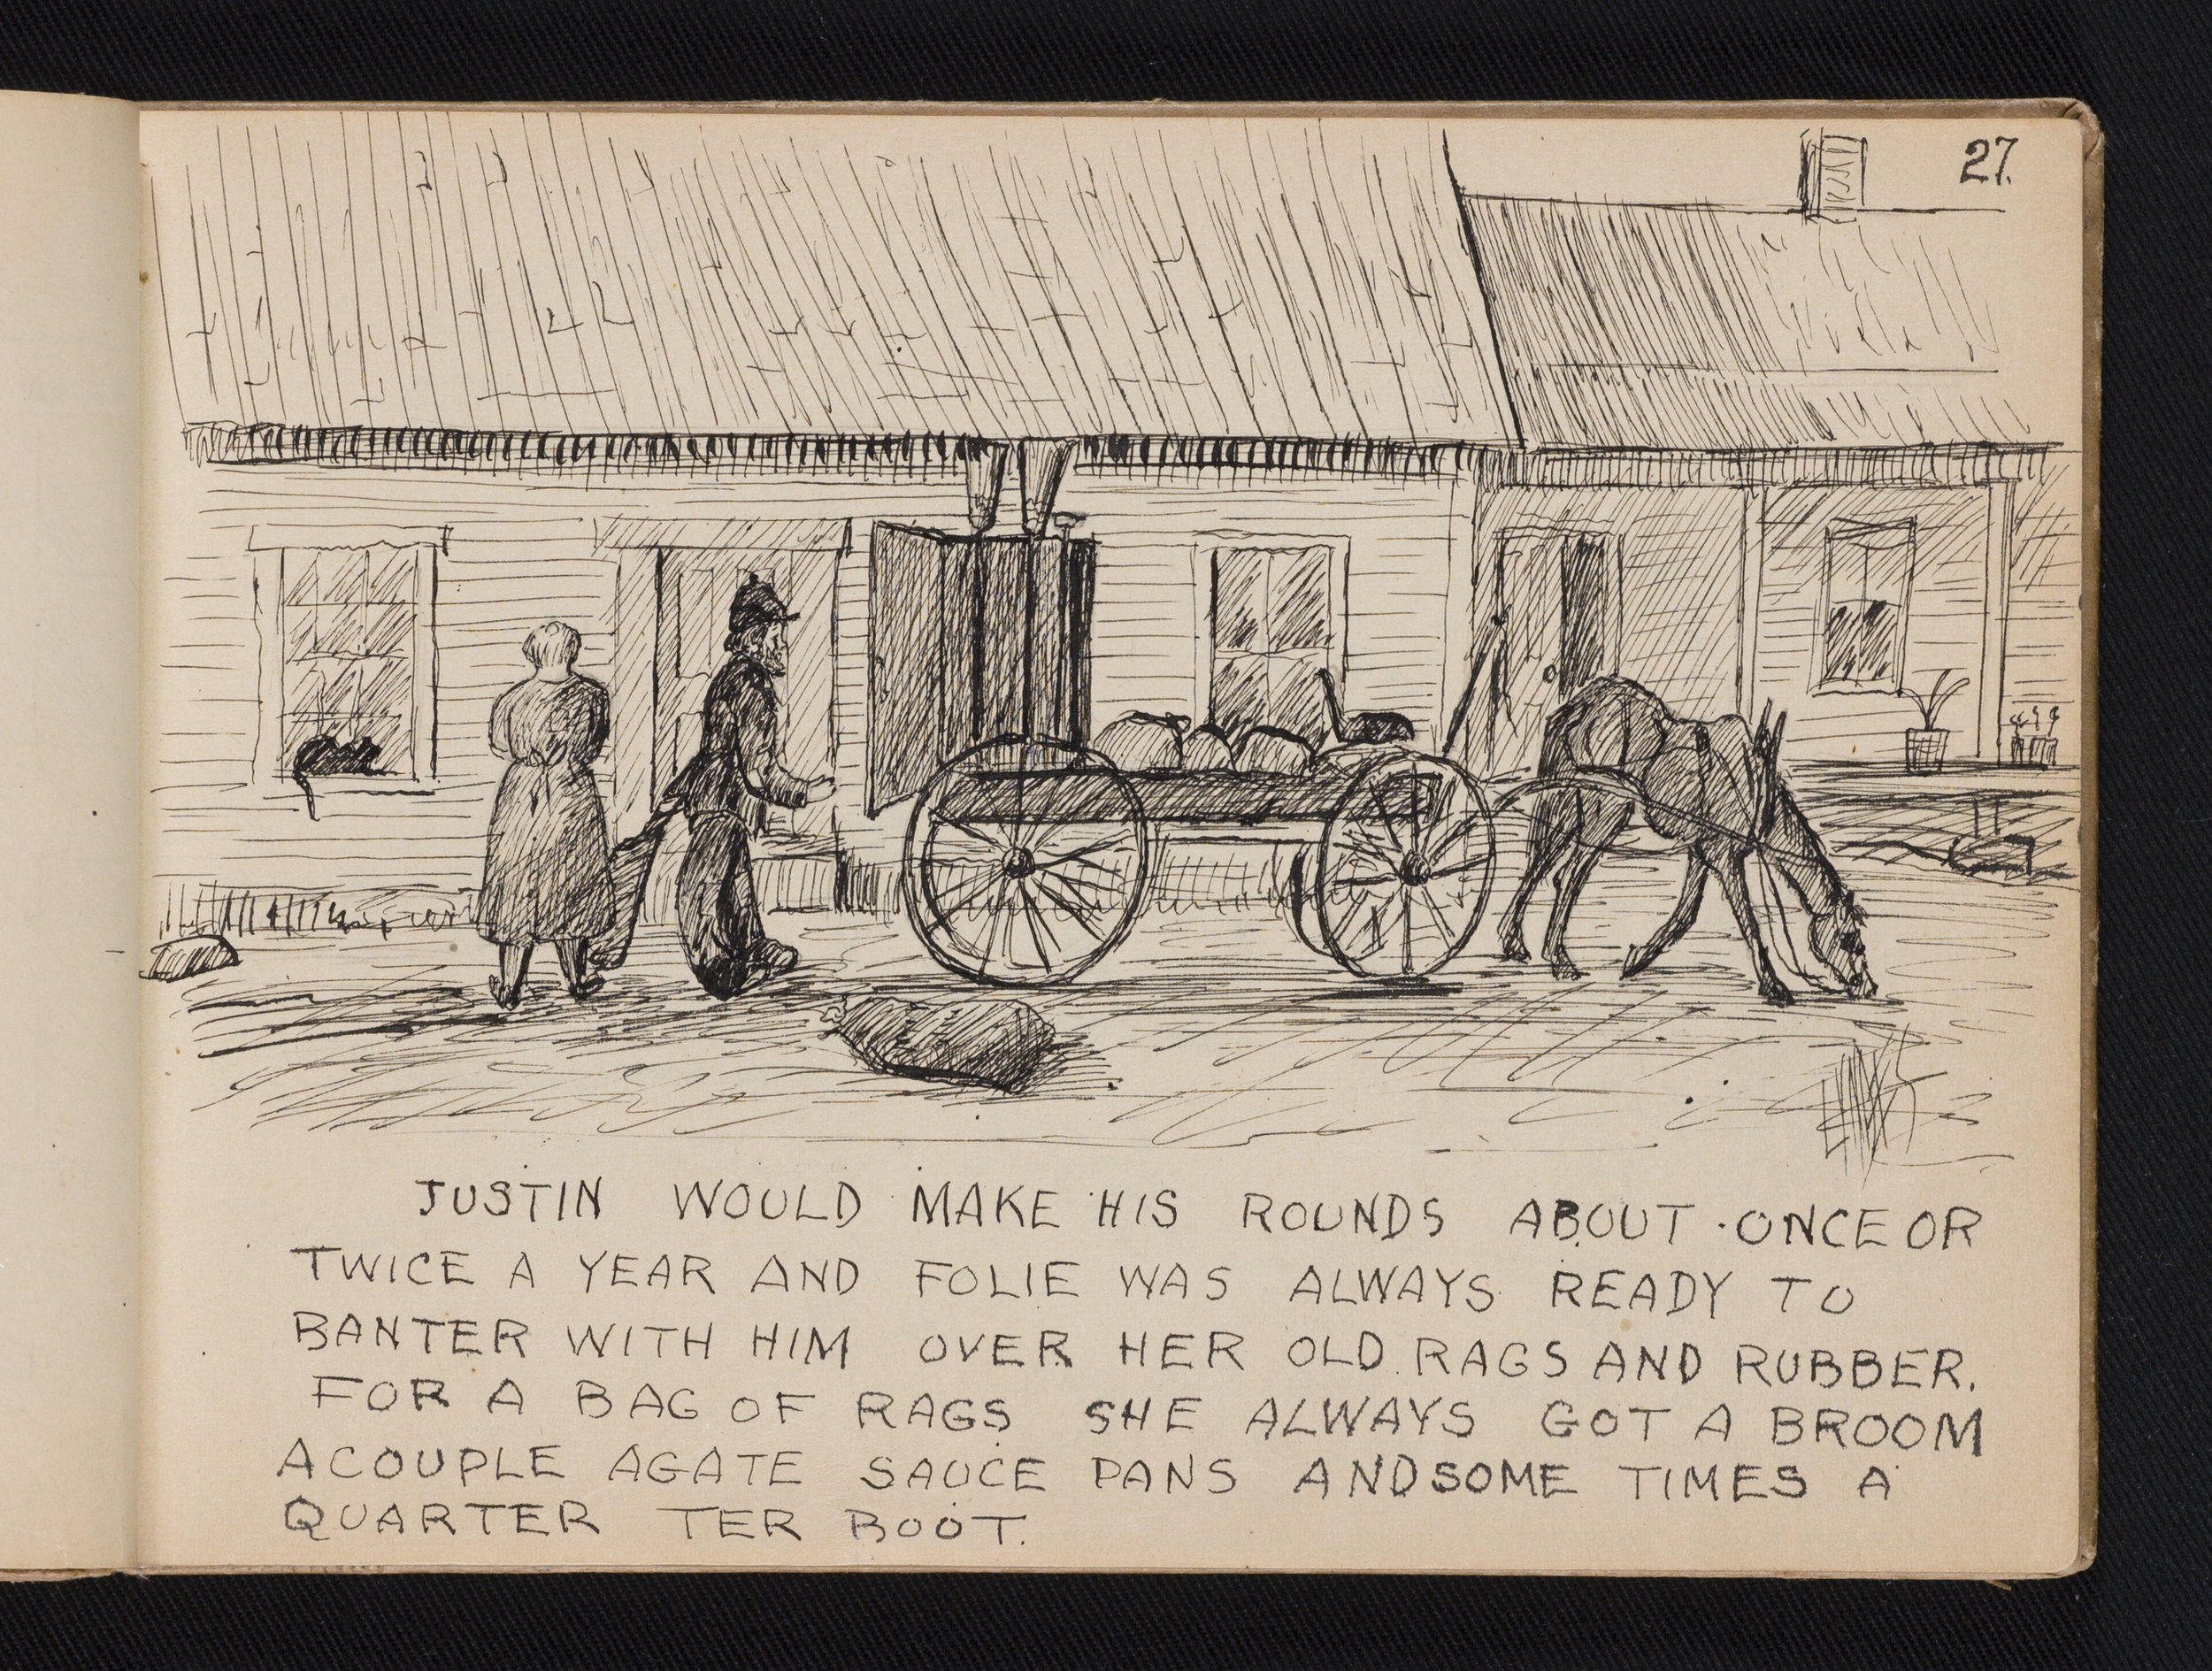 27.
JUSTIN WOULD MAKE HIS ROUNDS ABOUT ONCE OR
TWICE A YEAR AND FOLIE WAS ALWAYS READY TO
BANTER WITH HIM OVER HER OLD RAGS AND RUBBER.
FOR A BAG OF RAGS SHE ALWAYS GOT A BROOM
A COUPLE AGATE SAUCE PANS AND SOME TIMES A
QUARTER TER BOOT.